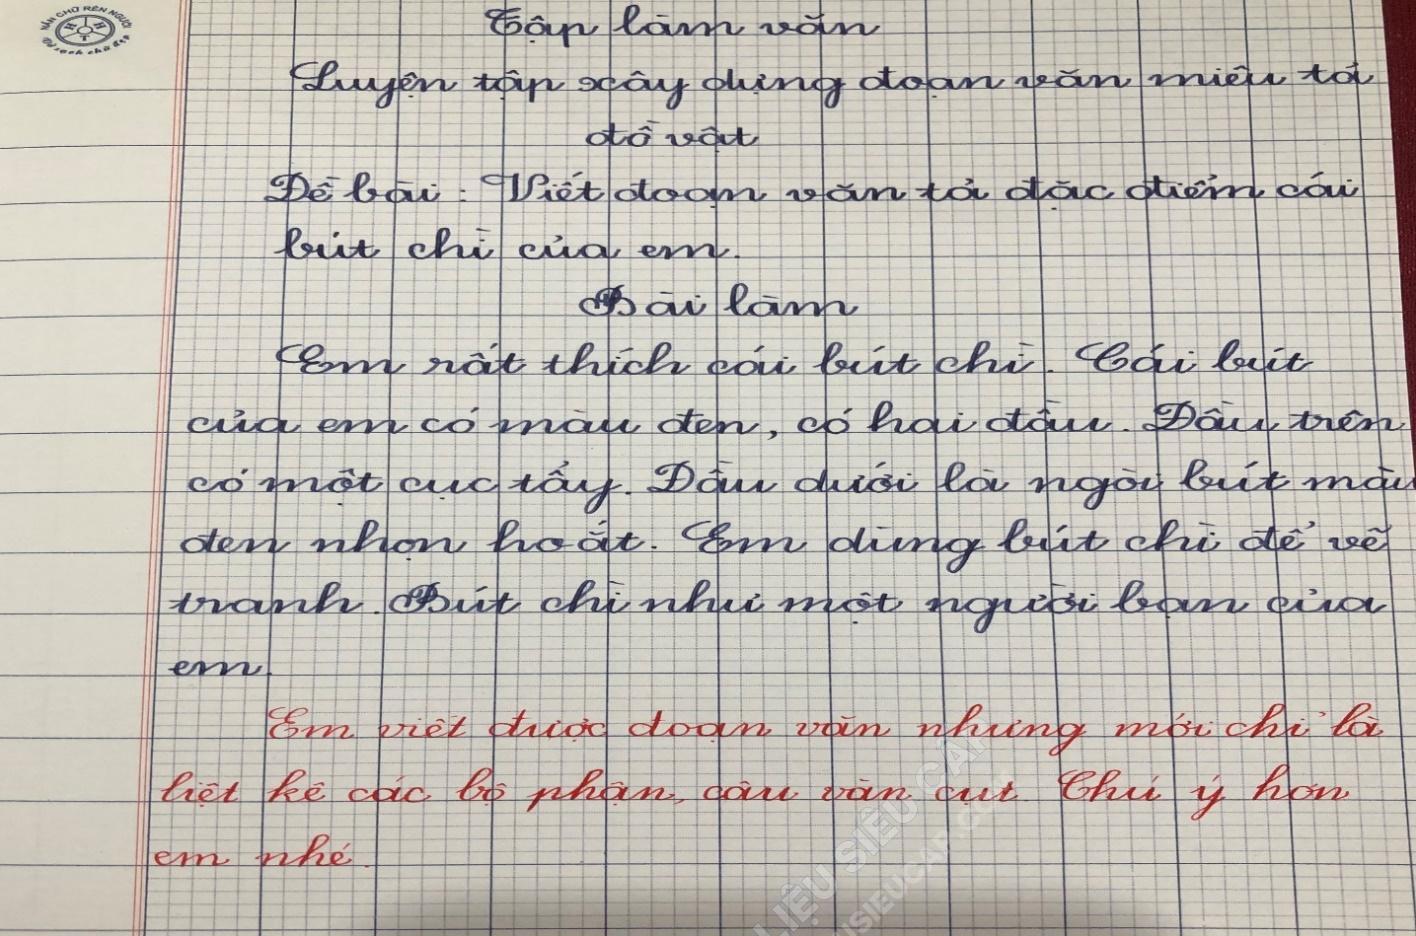 NÂN CHỮ RÈN NGƯỜI
Vở sạch chữ đẹp
Tập làm văn
Luyện tập xây dựng đoạn văn miêu tả
đồ vật
Đề bài : Viết đoạn văn tả đặc điểm cái
bút chì của em.
Bài làm
Em rất thích cái bút chì. Cái bút
của em có màu đen, có hai đầu. Đầu trên
có một cục tẩy. Đầu dưới là ngòi bút màu
đen nhọn hoắt. Em dùng bút chì để vẽ
tranh. Bút chì như một người bạn của
em.
Em viết được đoạn văn nhưng mới chỉ là
liệt kê các bộ phận, câu văn cụt. Chú ý hơn
em nhé.
LIỆU SIÊU CẤP
USIEUCAP.COM